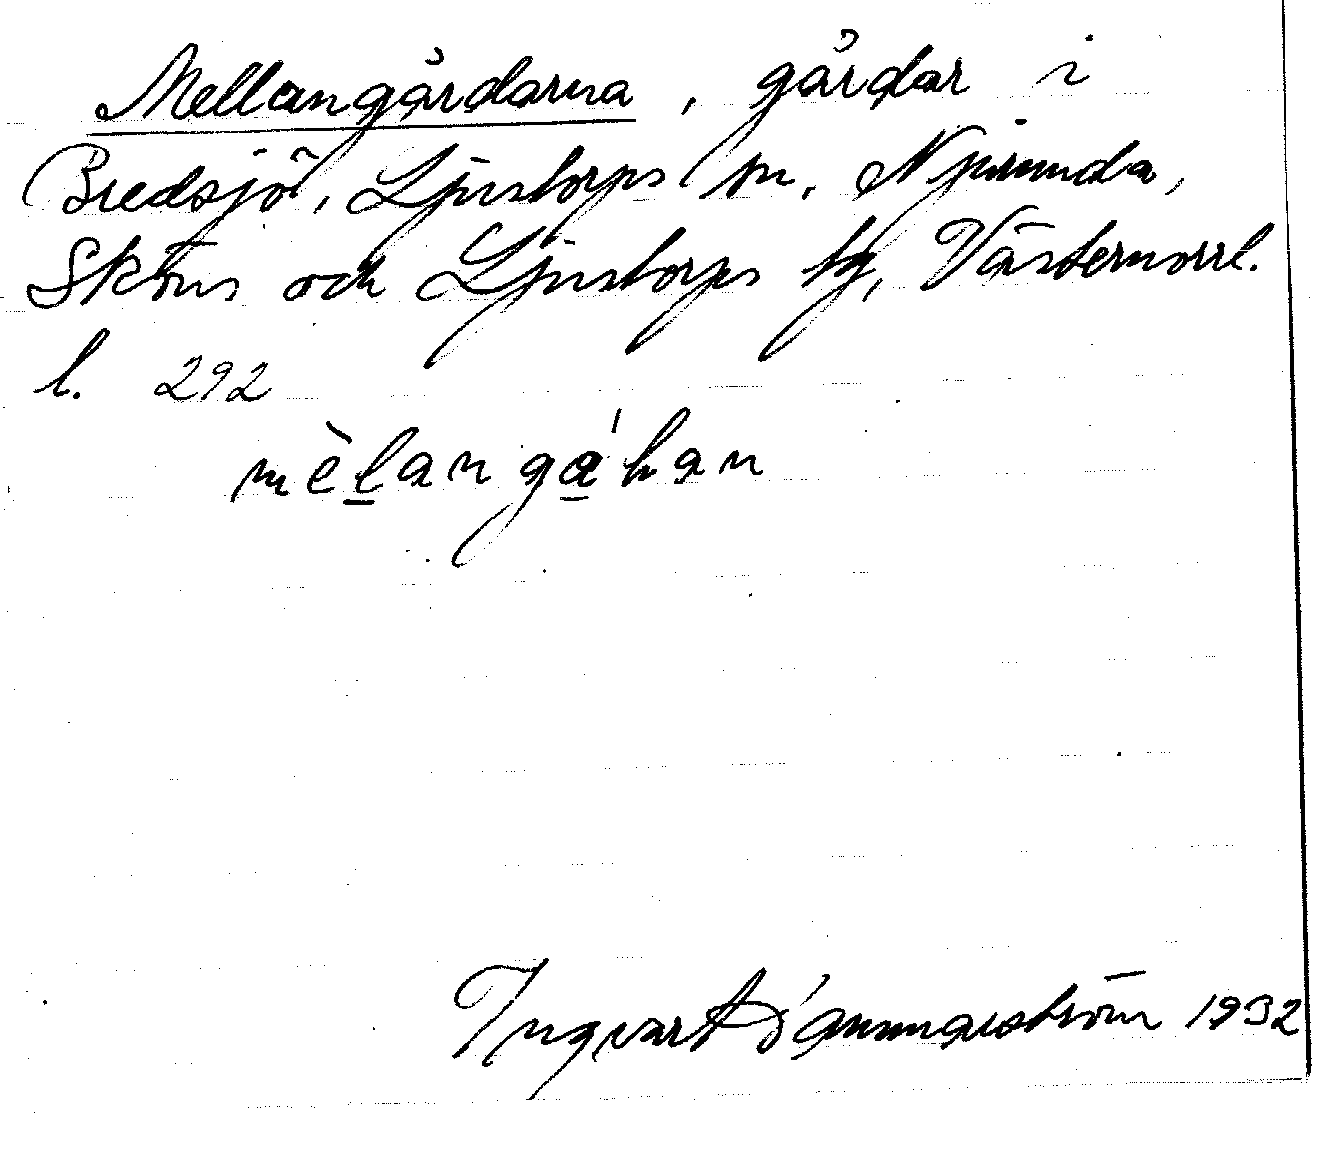 Mellangårdarna, gårdar i
Bredsjö, Ljustorps sn, Njurunda,
Sköns och Ljustorps tg, Västernorrl.
l. 292
mèlangáḷan
Ingvar Hammarström 1932